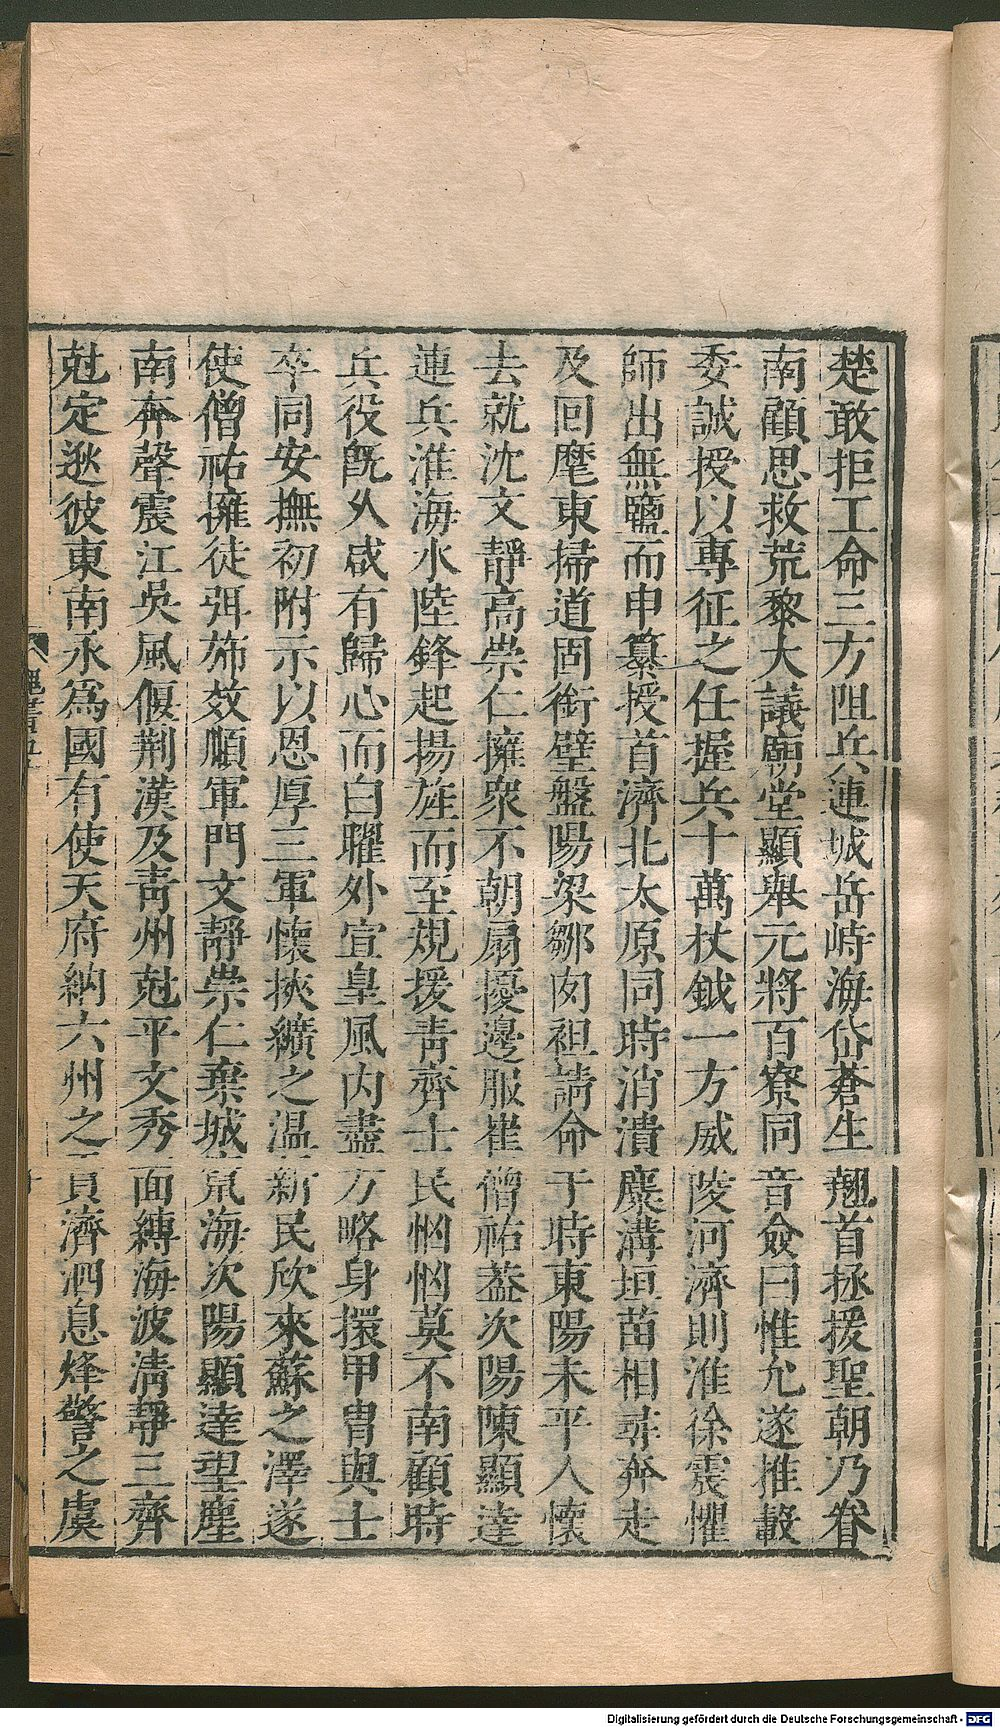 楚敢拒工命三方阻兵連城岳峙海岱蒼生翹首拯援聖朝乃眷
南顧思救荒黎大議廟堂顯舉元將百寮同音僉曰惟允遂推轂
委誠授以專征之任握兵十萬杖鉞一方威陵河濟則淮徐震懼
師出無鹽而申纂授首濟北太原同時消潰麋溝垣苗相尋奔走
及回麾東掃道固銜璧盤陽梁鄒肉袒請命于時東陽未平人懷
去就沈文靜高崇仁擁衆不朝扇擾邊服崔僧祐蓋次陽陳顯達
連兵淮海水陸鋒起揚旌而至規援青齊士民恟恟莫不南顧時
兵役旣久咸有歸心而白曜外宣皇風內盡方略身擐甲冑與士
卒同安撫初附示以恩厚三軍懷挾纊之溫新民欣來蘇之澤遂
使僧祐擁徒弭斾效順軍門文靜崇仁棄城竄海次陽顯達望塵
南奔聲震江吳風偃荆漢及青州尅平文秀面縛海波清靜三齊
尅定逖彼東南永爲國有使天府納六州之貢濟泗息烽警之虞
Digitalisierung gefördert durch die Deutsche Forschungsgemeinschaft - DFG